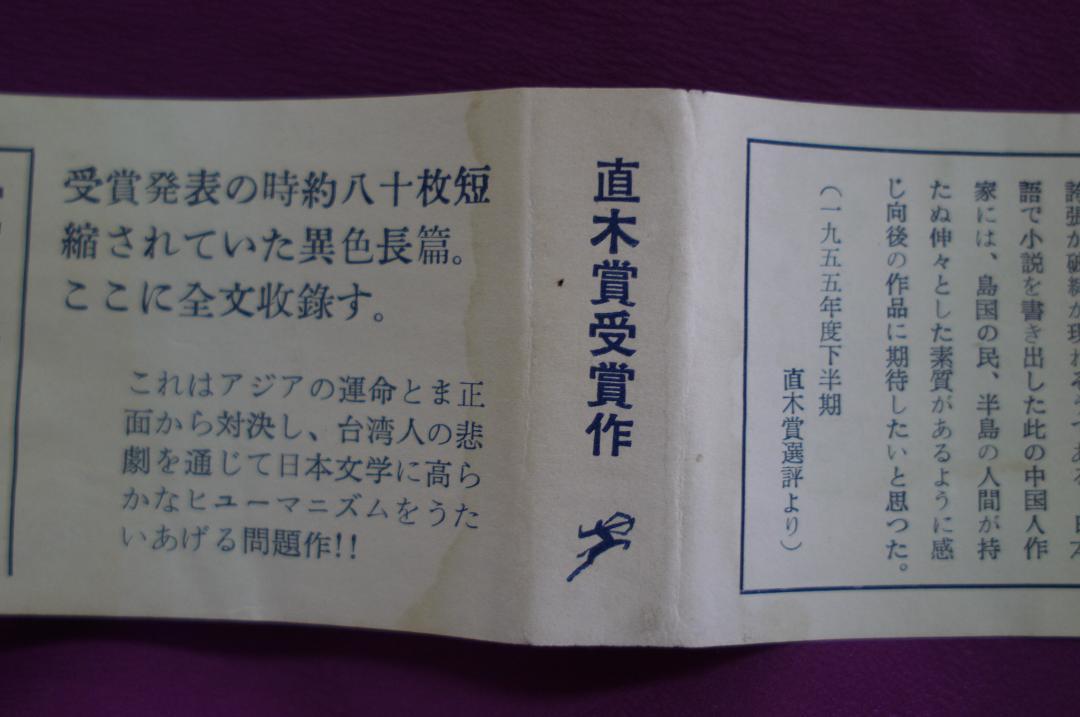 受賞発表の時約八十枚短
縮されていた異色長篇。
ここに全文收錄す。
これはアジアの運命とま正
面から対決し、台湾人の悲
劇を通じて日本文学に高ら
かなヒューマニズムをうた
いあげる問題作!!
直木賞受賞作
語で小説を書き出した此の中国人作
家には、島国の民、半島の人間が持
たぬ伸々とした素質があるように感
じ向後の作品に期待したいと思つた。
（一九五五年度下半期
直木賞選評より）